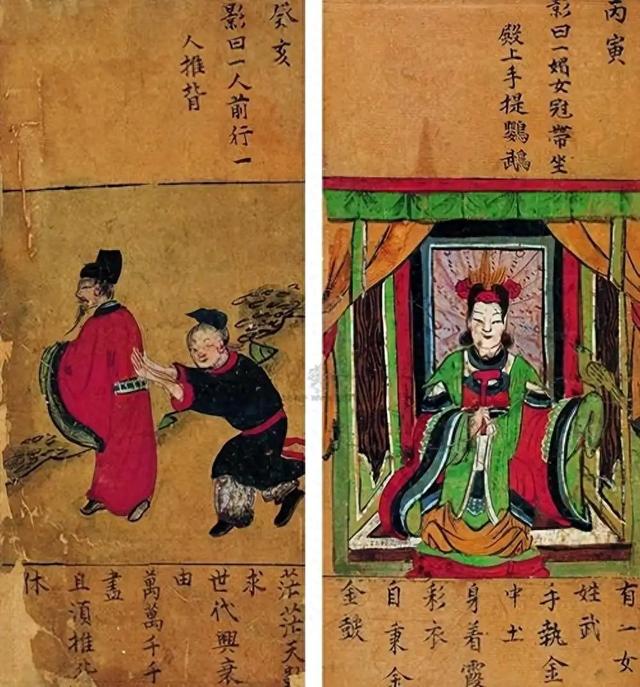 癸亥
影曰一人前行一
人推背
茫茫天
求
世代興衰
由
萬萬千千
盡
且須推
休
丙寅
影曰一媚女冠帶坐
殿上手提鸚鵡
有二女
姓武
手執金
中土
身着霞
彩衣
自秉金
金皷